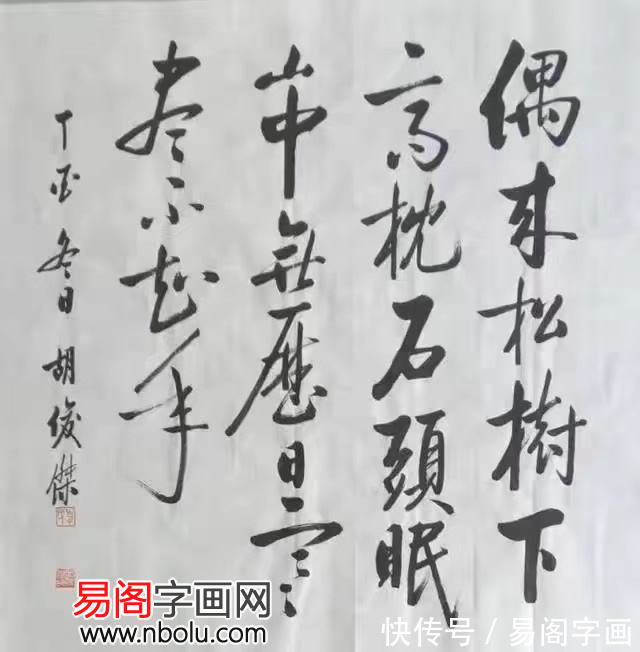 偶来松樹下
高枕石頭眠
山中無歷日寒
尽不知年
丁酉冬日胡俊傑
易阁字画网
www.nbolu.com
快传号 / 易阁字画